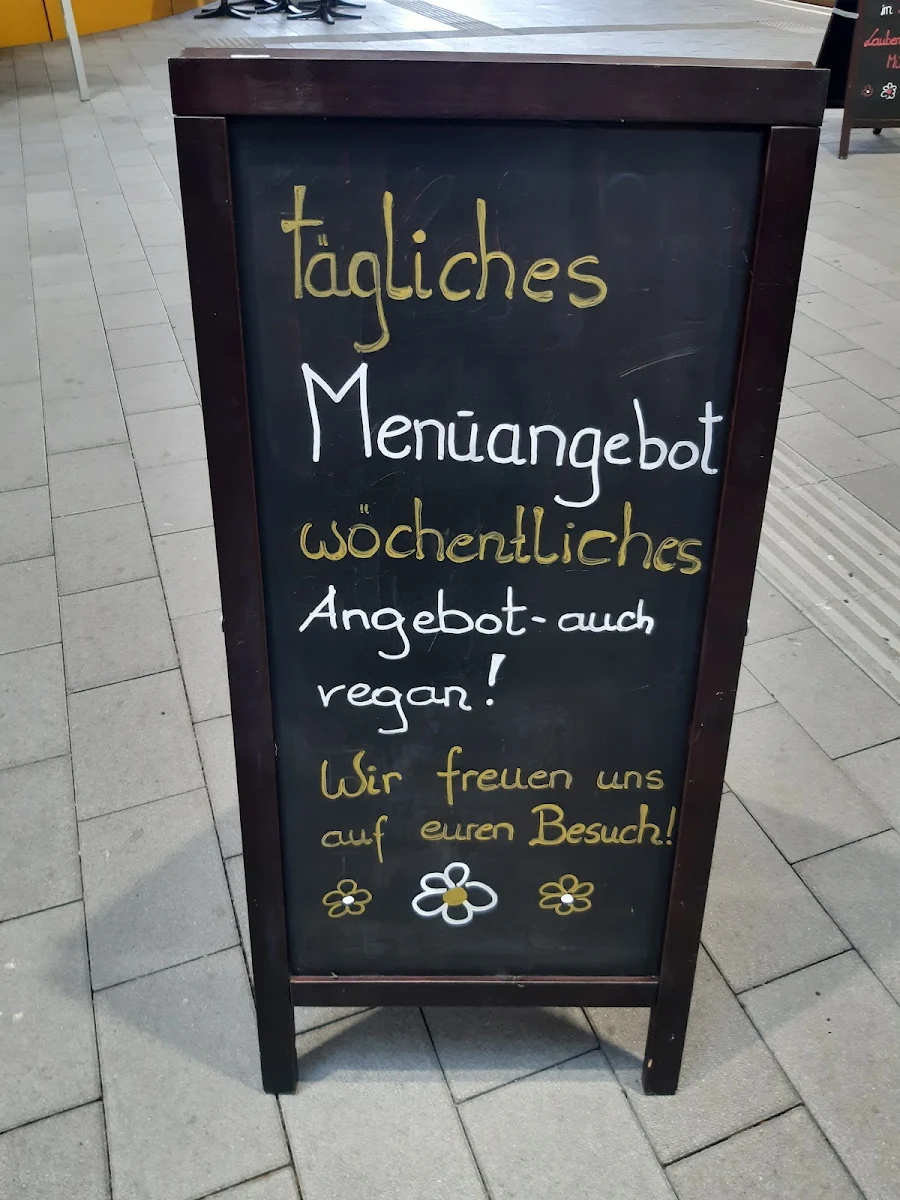 tägliches
Menüangebot
wöchentliches
Angebot - auch
vegan!
Wir freuen uns
auf euren Besuch!
in